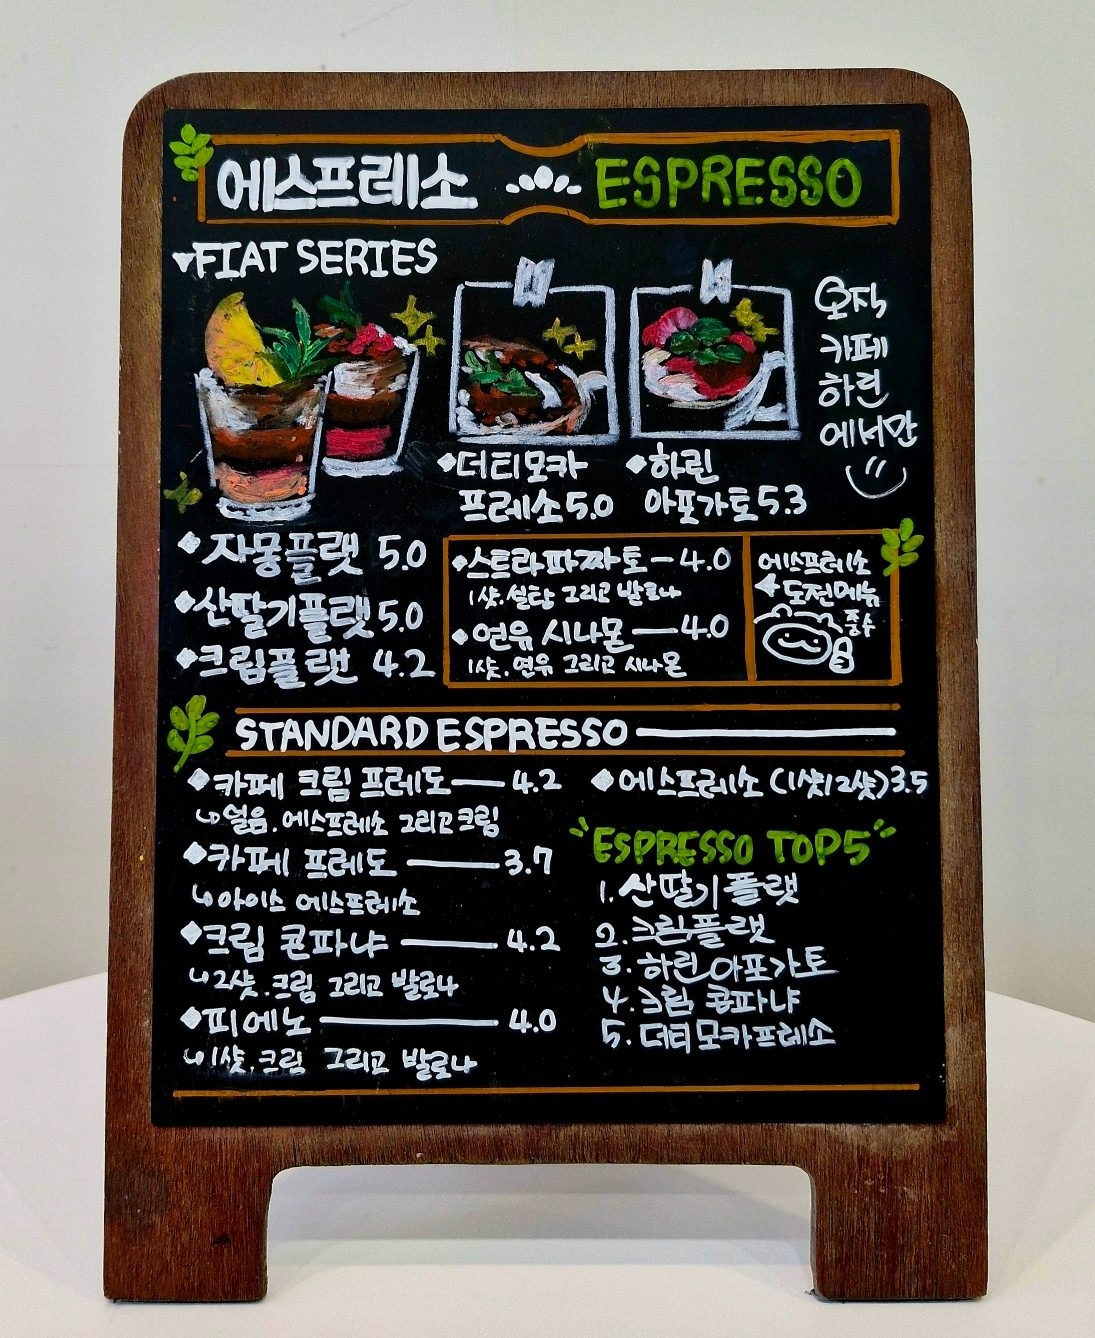 에스프레소 ESPRESSO
▼FIAT SERIES
오직
카페
하린
에서만
◆더티모카
프레소 5.0
◆하린
아포가토 5.3
◆자몽플랫 5.0
◆산딸기플랫 5.0
◆크림플랫 4.2
◆스트라파짜토 - 4.0
1샷.설탕 그리고 발로나
◆연유 시나몬 - 4.0
1샷.연유 그리고 시나몬
에스프레소
도전메뉴
STANDARD ESPRESSO
◆카페 크림 프레도 - 4.2
↳얼음.에스프레소 그리고 크림
◆카페 프레도 - 3.7
↳아이스 에스프레소
◆크림 콘파냐 - 4.2
↳2샷.크림 그리고 발로나
◆피에노 - 4.0
↳1샷.크림 그리고 발로나
◆에스프레소 (1샷/2샷) 3.5
"ESPRESSO TOP5"
1. 산딸기플랫
2. 크림플랫
3. 하린 아포가토
4. 크림 콘파냐
5. 더티모카프레소